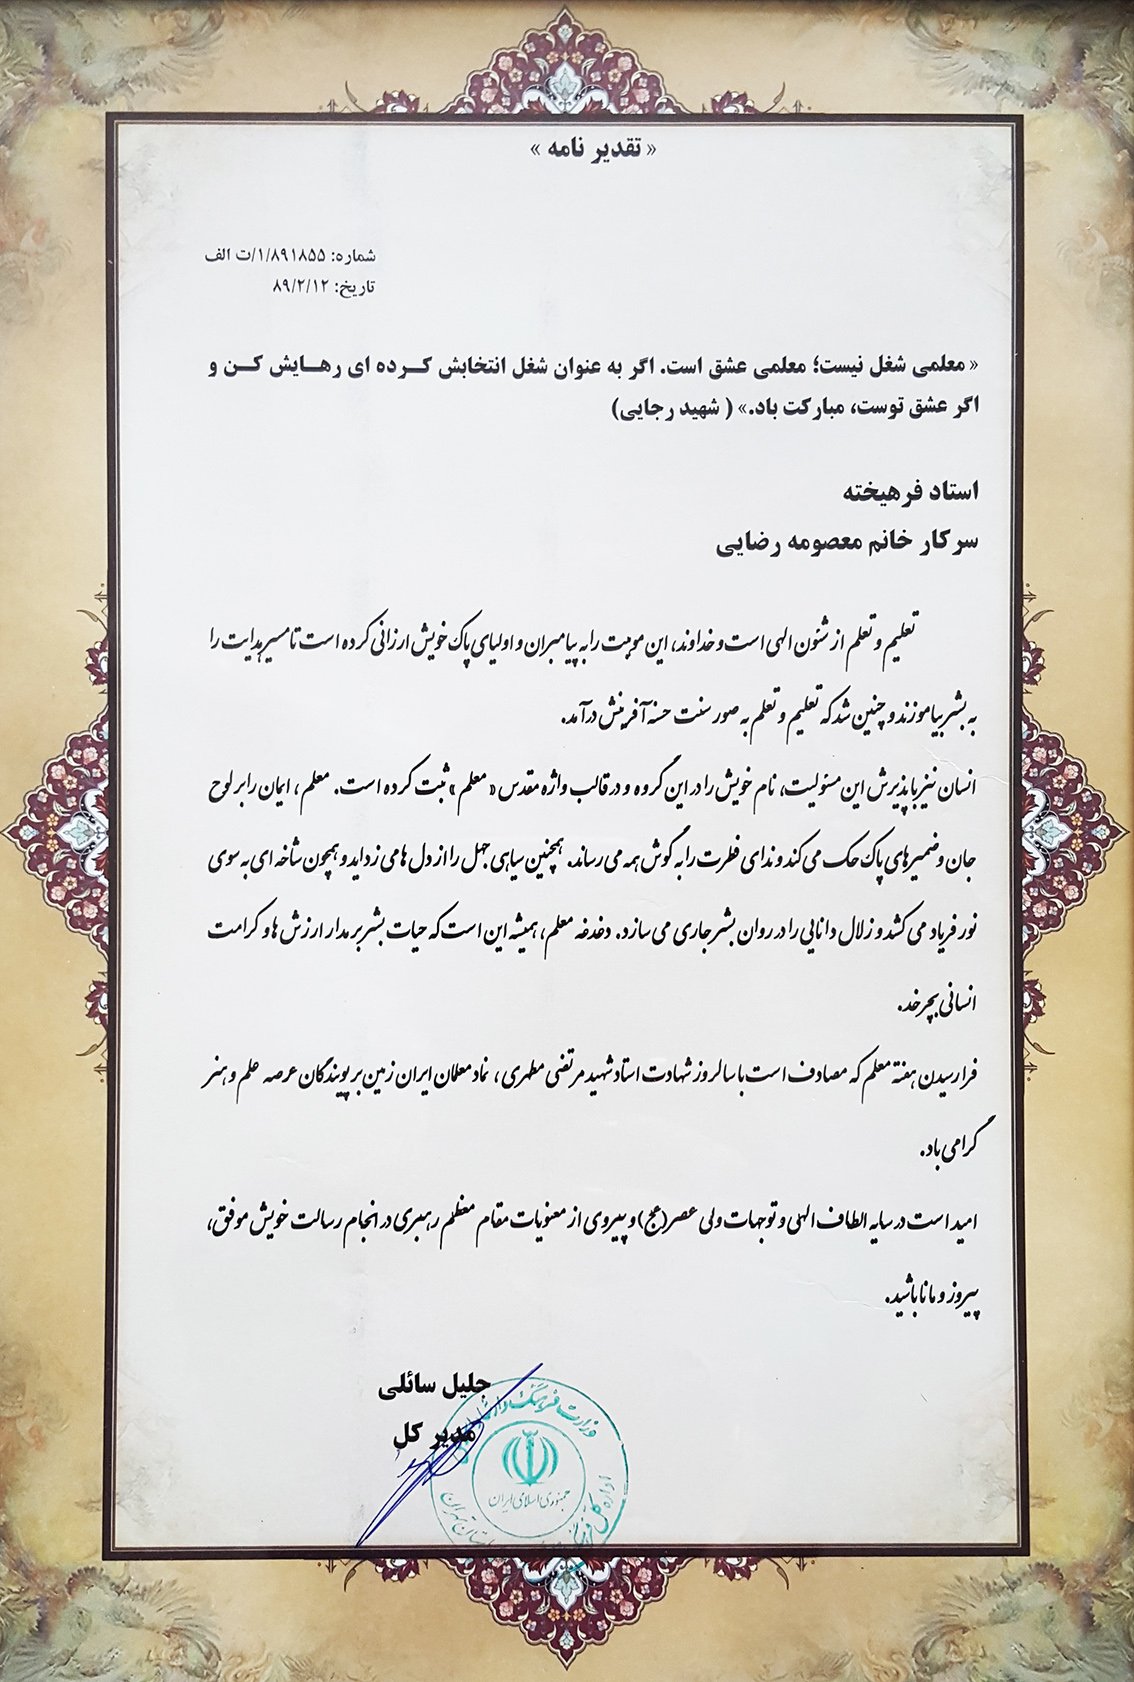 « تقدیر نامه »
شماره: ۱/۸۹۱۸۵۵/ت الف
تاریخ: ۸۹/۲/۱۲
« معلمی شغل نیست؛ معلمی عشق است. اگر به عنوان شغل انتخابش کرده ای رهایش کن و
اگر عشق توست، مبارکت باد.» ( شهید رجایی)
استاد فرهیخته
سرکار خانم معصومه رضایی
تعلیم و تعلم از شئون الهی است و خداوند، این موهبت را به پیامبران و اولیای پاک خویش ارزانی کرده است تا مسیر هدایت را
به بشر بیاموزند و چنین شد که تعلیم و تعلم به صورت سنت حسنه آفرینش درآمد.
انسان نیز با پذیرش این مسئولیت، نام خویش را در این گروه و در قالب واژه مقدس « معلم» ثبت کرده است. معلم ، ایمان را بر لوح
جان و ضمیرهای پاک حک می کند و ندای فطرت را به گوش همه می رساند. همچنین سیاهی جهل را از دل ها می زداید و همچون شاخه ای به سوی
نور فریاد می کشد و زلال دانایی را در روان بشر جاری می سازد. دغدغه معلم، همیشه این است که حیات بشر بر مدار ارزش ها و کرامت
انسانی بچرخد.
فرا رسیدن هفته معلم که مصادف است با سالروز شهادت استاد شهید مرتضی مطهری ، نماد معلمان ایران زمین بر پویندگان عرصه علم و هنر
گرامی باد.
امید است در سایه الطاف الهی و توجهات ولی عصر(عج) و پیروی از معنویات مقام معظم رهبری در انجام رسالت خویش موفق،
پیروز و مانا باشید.
جلیل سائلی
مدیر کل
وزارت فرهنگ و ارشاد
جمهوری اسلامی ایران
اداره کل
استان تهران